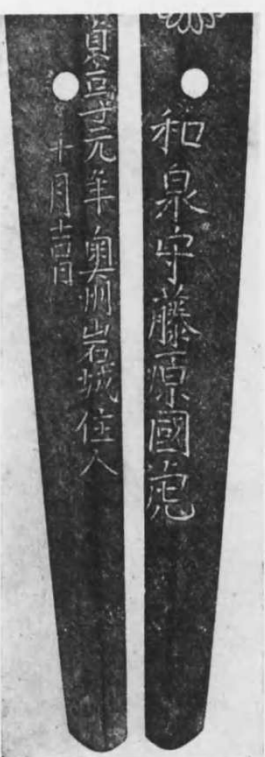 和泉守藤原國虎
貞享元年奥州岩城住人
十月吉日